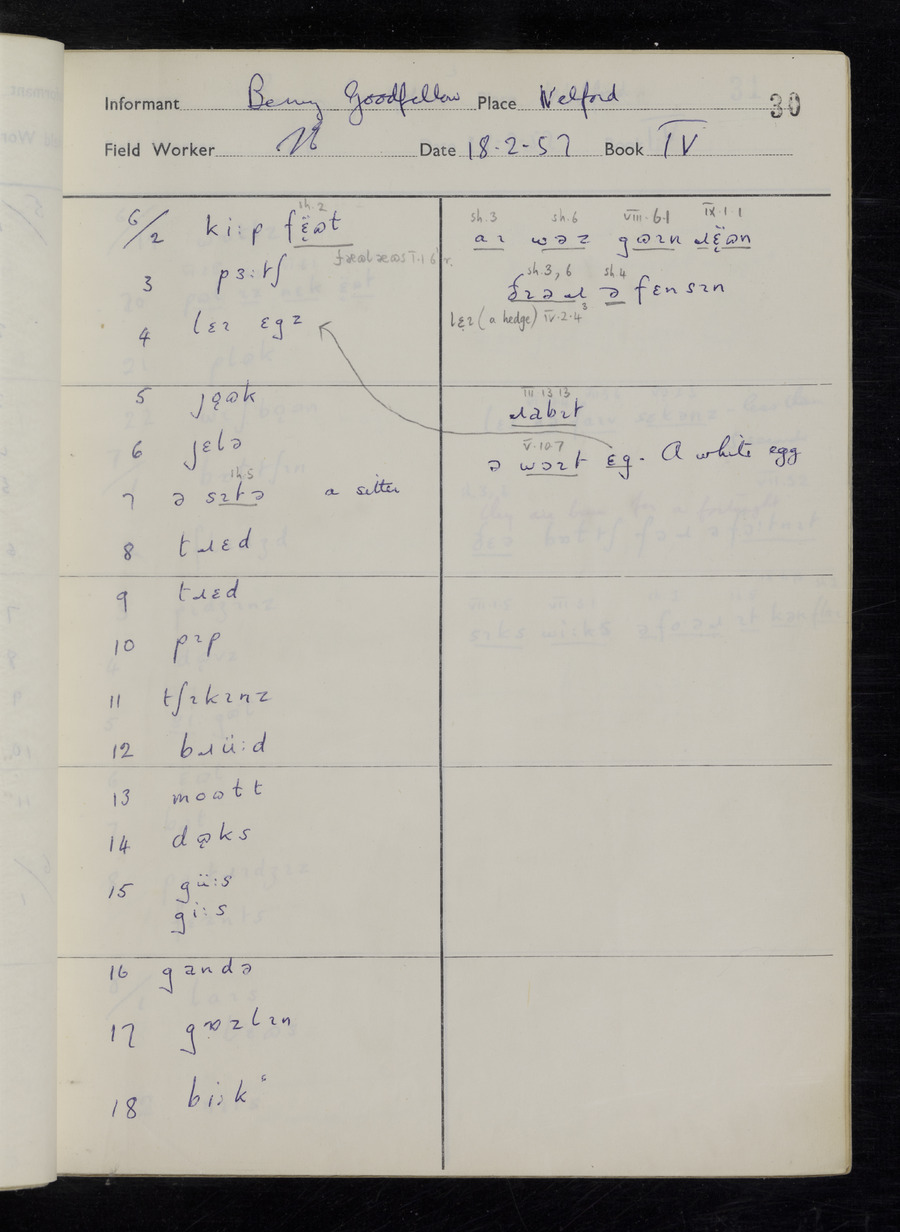 Informant Benny Goodfellow Place Welford 30
Field Worker Date 18-2-57 Book IV
sh.2
6/2 ki:p fɛ̈ɷt
3 pɜ:tʃ
4 lɛɪ ɛgz
5 jɷk
6 jɛlə
th.5
7 ə sɪtə a sitter
8 tɹɛd
9 tɹɛd
10 pɪp
11 tʃɪkɪnz
12 bɹü:d
13 moɷtt
14 dɷks
15 gü:s
gi:s
16 gandə
17 gɒzlɪn
18 bi:k
sh.3 sh.6 VIII.6.1 IX.1.1
aɪ wəz gɷɪn ɹɛ̈ɷn
sh.3, 6 sh.4
ðɪəɹ ə fɛnsɪn
lɛɪ (a hedge) IV.2.4
III 13 13
ɹabɪt
V.10.7
ə wɔɪt ɛg. A white egg